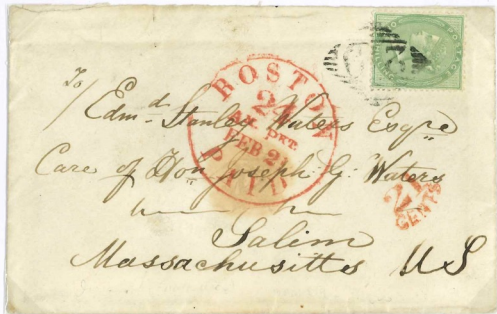 BOSTON
24
PKT.
FEB 21
PAID
To/ Edmd Stanley Waters Esqre
Care of Hon Joseph G. Waters
21
CENTS
Salem
Massachusitts US